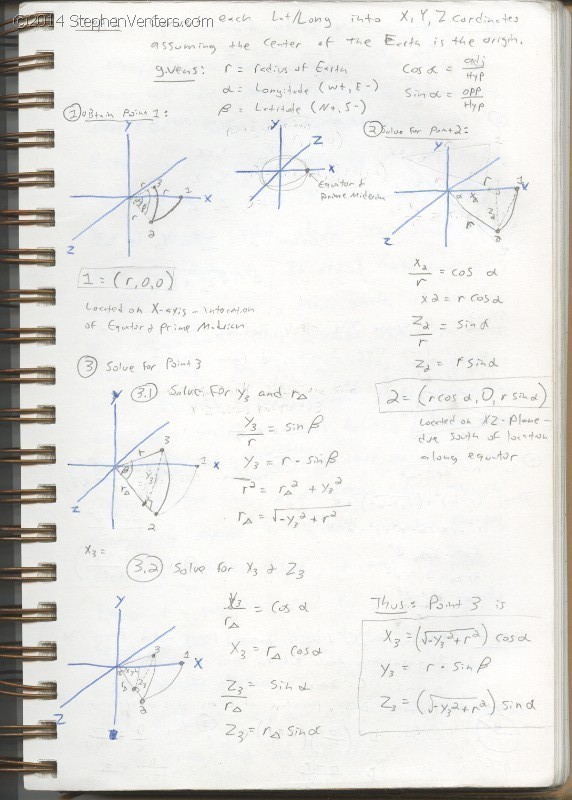 ©2014 StephenVenters.com
each Lat/Long into X, Y, Z cordinates
assuming the center of the Earth is the origin.
givens: r = radius of Earth
α = Longitude (W+, E-)
β = Latitude (N+, S-)
Cos α = adj/Hyp
Sin α = opp/Hyp
① Obtain Point 1:
Y
r
r
r
1
2
X
Z
Y
Z
X
Equator &
prime Meridian
② Solve for Point 2:
Y
r
1
X
α
X2
Z2
r
2
Z
1 = (r, 0, 0)
Located on X-axis -
of Equator & Prime Meridian
X2/r = cos α
x2 = r cos α
Z2/r = sin α
Z2 = r sin α
2 = (r cos α, 0, r sin α)
Located on XZ-Plane -
due South of location
along equator
③ Solve for Point 3
3.1 Solve For Y3 and r△
Y
3
r
β
Y3
r△
1
X
2
Z
Y3/r = sin β
Y3 = r · sin β
r² = r△² + Y3²
r△ = √-Y3² + r²
X3 =
3.2 Solve for X3 & Z3
Y
3
1
X
Z
/r△ = cos α
X3 = r△ cos α
Z3/r△ = sin α
Z3 = r△ sin α
Thus: Point 3 is
X3 = (√-Y3² + r²) cos α
Y3 = r · sin β
Z3 = (√-Y3² + r²) sin α